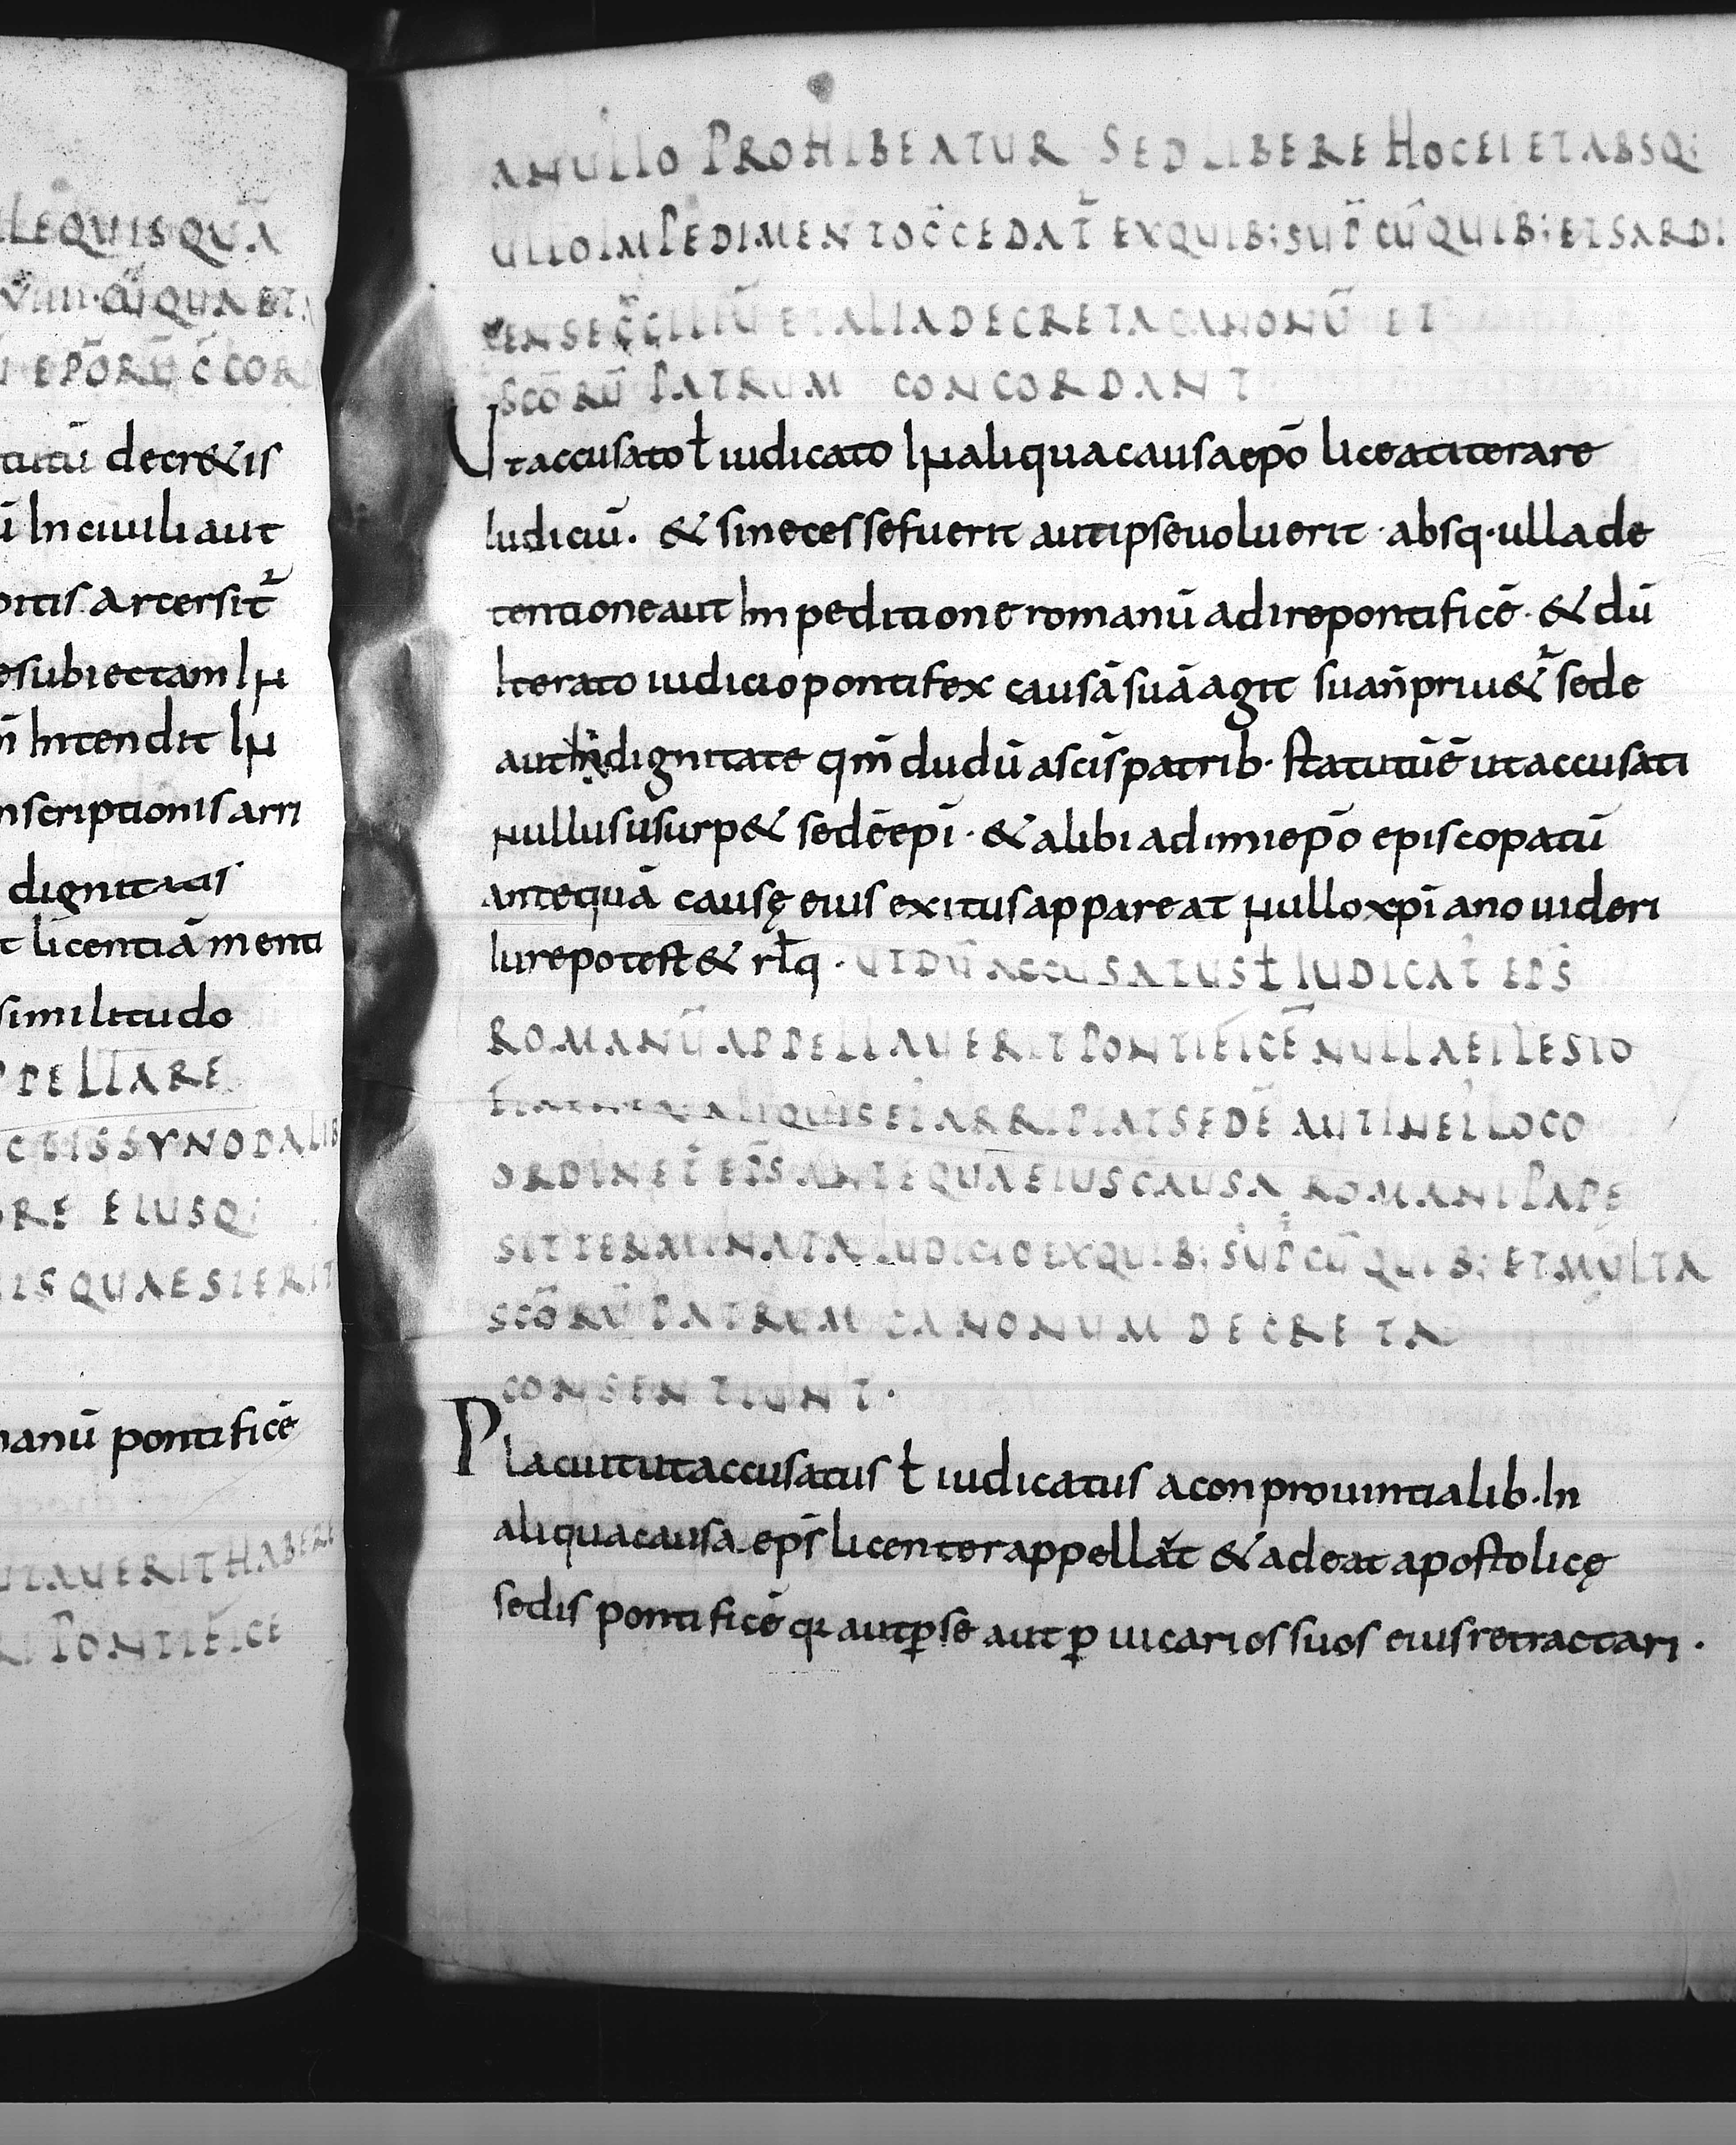 LEQUISQUĀ
VIIII· QUIQUA ET
EPŌRŪ C̄COR
tutū decr&is
ū In ciuili aut
oris arcersit̄
esubiectam IN
m̄ Intendit IN
nscriptionis arri
dignitatis
t licentiā menti
similitudo
PPELLARE
CTIS SYNODALIB
ORE EIUSQ;
IS QUAESIERIT
manū pontificē
UTAUERIT HABERE
RI PONTIFICE
A NULLO PROHIBEATUR SED LIBERE HOC EI ET ABSQ;
ULLO IMPEDIMENTO C̄CEDAT̄ EX QUIB; SUP̄ CŪ QUIB; ET SARDI
CENSE C̄CILIŪ ET ALIA DECRETA CANONŪ ET
SC̄ORŪ PATRUM CONCORDANT
Ut accusato ł iudicato IN aliqua causa ep̄o liceat iterare
Iudiciū. & si necesse fuerit aut ipse uoluerit · absq· ulla de
tentione aut Inpeditione romanū adire pontificē · & dū
Iterato iudicio pontifex causā suā agit sua n̄ priu&̄ sede
aut dignitate qm̄ dudū a sc̄is patrib· statutū ē ut accusati
Nullus usurp& sedē ep̄i · & alibi adimi ep̄o episcopatū
antequā causę eius exitus appareat Nullo xp̄iano uideri
Iure potest & rłq · UT DŪ ACCUSATUS ł IUDICAT̄ EP̄S
ROMANŪ APPELLAUERIT PONTIFICĒ NULLA EI LESIO
ALIQUIS EI ARRIPIAT SEDĒ AUT IN EI LOCO
ORDINET̄ EP̄S ANTEQUA EIUS CAUSA ROMANI PAPĘ
SIT TERMINATA IUDICIO EX QUIB; SUP̄ CŪ QUIB; ET MULTA
SC̄ORŪ PATRUM CANONUM DECRETA
CONSENTIUNT.
Placuit ut accusatus ł iudicatus a conprouintialib· In
aliqua causa ep̄s licenter appellāt & adeat apostolicę
sedis pontificē q· aut ꝑ se aut ꝑ uicarios suos eius retractari ·